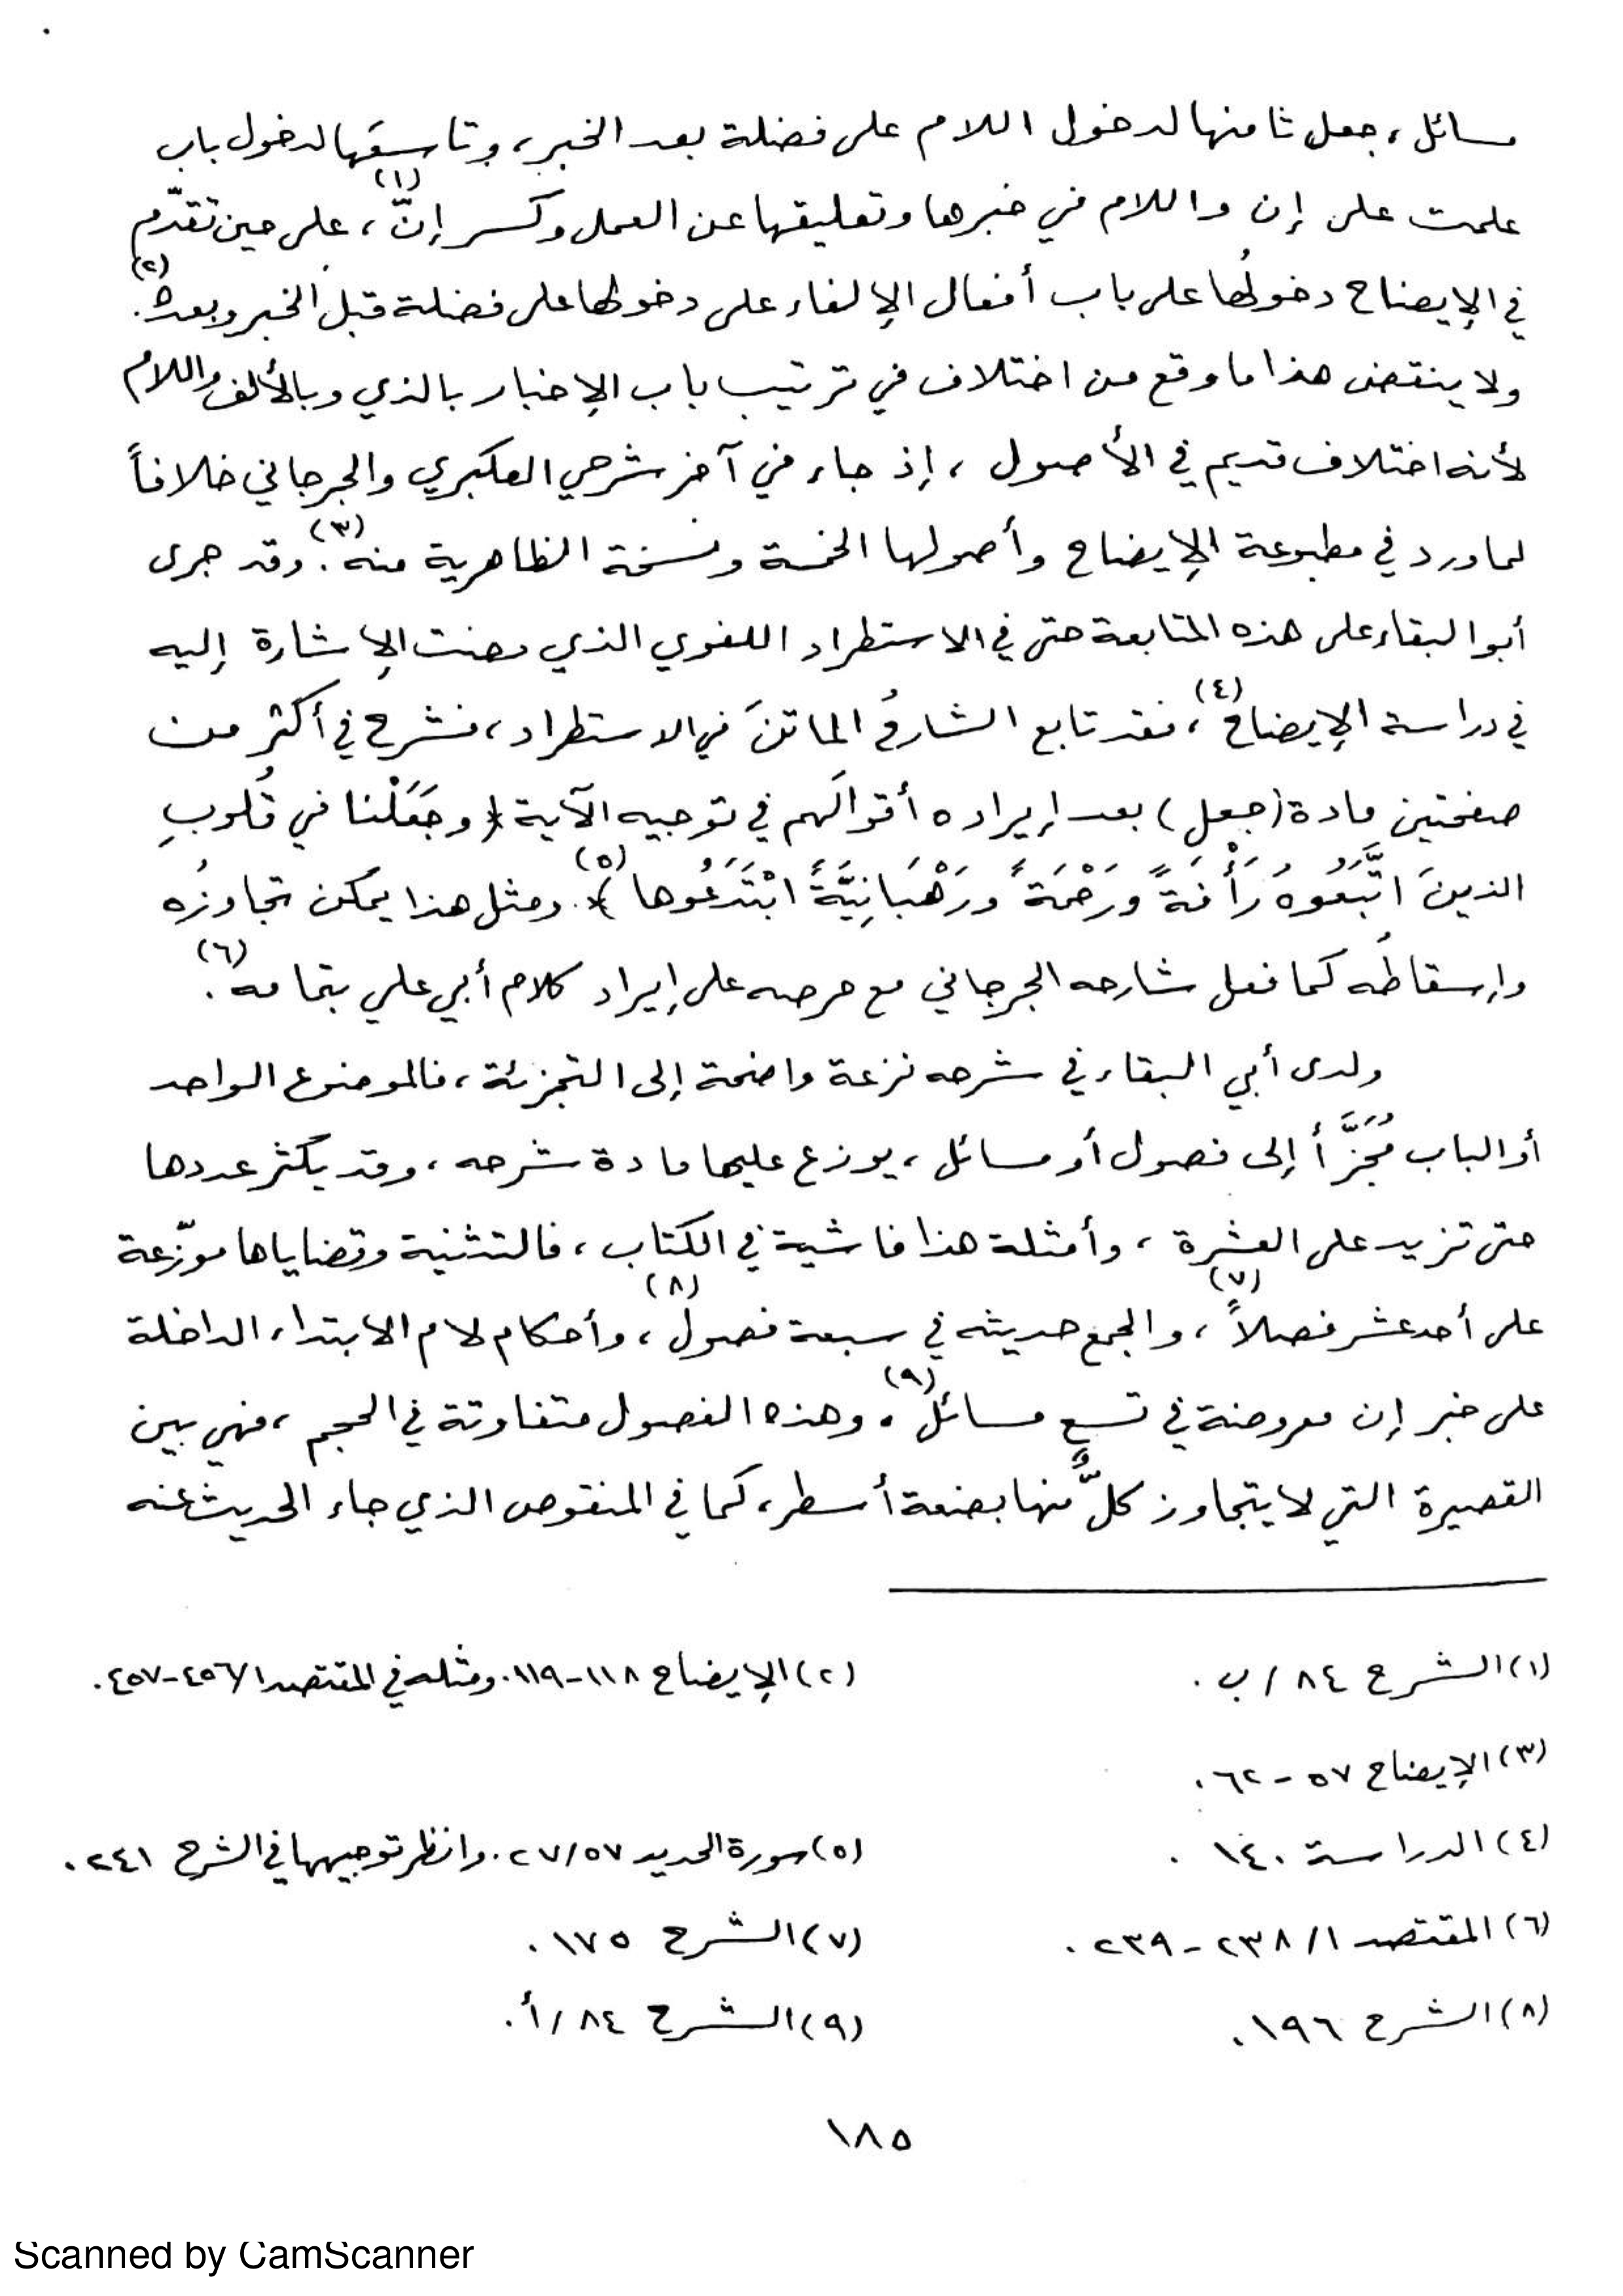 مسائل، جعل ثامنها لدخول اللام على فضلة بعد الخبر، وتاسعَها لدخول باب
علمت على إن واللام في خبرها وتعليقها عن العمل وكسر إنّ(١)، على حين تقدّم
في الإيضاح دخولُها على باب أفعال الإلغاء على دخولها على فضلة قبل الخبر وبعده(٢).
ولا ينقض هذا ما وقع من اختلاف في ترتيب باب الإخبار بالذي وبالألف واللام
لأنه اختلاف قديم في الأصول، إذ جاء في آخر شرحي العكبري والجرجاني خلافاً
لما ورد في مطبوعة الإيضاح وأصولها الخمسة ونسخة الظاهرية منه(٣). وقد جرى
أبو البقاء على هذه المتابعة حتى في الاستطراد اللغوي الذي مضت الإشارة إليه
في دراسة الإيضاح(٤)، فقد تابع الشارحُ الماتنَ في الاستطراد، فشرح في أكثر من
صفحتين مادة (جعل) بعد إيراده أقوالَهم في توجيه الآية ﴿وجَعَلْنا في قُلوبِ
الذينَ اتَّبَعُوهُ رَأْفَةً ورَحْمَةً ورَهْبَانِيَّةً ابْتَدَعُوها﴾(٥). ومثل هذا يمكن تجاوزُه
وإسقاطُه كما فعل شارحه الجرجاني مع حرصه على إيراد كلام أبي علي بتمامه(٦).
ولدى أبي البقاء في شرحه نزعة واضحة إلى التجزئة، فالموضوع الواحد
أو الباب مُجَزَّأ إلى فصول أو مسائل، يوزع عليها مادة شرحه، وقد يكثر عددها
حتى تزيد على العشرة، وأمثلة هذا فاشية في الكتاب، فالتثنية وقضاياها موزّعة
على أحد عشر فصلاً(٧)، والجمع حديثه في سبعة فصول(٨)، وأحكام لام الابتداء الداخلة
على خبر إن معروضة في تسعِ مسائل(٩). وهذه الفصول متفاوتة في الحجم، فهي بين
القصيرة التي لا يتجاوز كلٌّ منها بضعة أسطر، كما في المنقوص الذي جاء الحديث عنه
(١) الشرح ٨٤/ب.
(٢) الإيضاح ١١٨-١١٩. ومثله في المقتصد ١/٤٥٦-٤٥٧.
(٣) الإيضاح ٥٧-٦٢.
(٤) الدراسة ١٤٠.
(٥) سورة الحديد ٢٧/٥٧. وانظر توجيهها في الشرح ٢٤١.
(٦) المقتصد ١/٢٣٨-٢٣٩.
(٧) الشرح ١٧٥.
(٨) الشرح ١٩٦.
(٩) الشرح ٨٤/أ.
١٨٥
Scanned by CamScanner